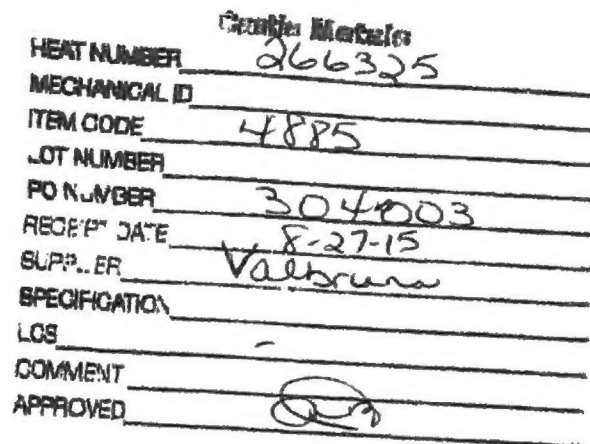 Castle Metals
HEAT NUMBER 266325
MECHANICAL ID
ITEM CODE 4885
LOT NUMBER
PO NUMBER 3041003
RECEIPT DATE 8-27-15
SUPPLIER Valbruna
SPECIFICATION
LCS -
COMMENT
APPROVED